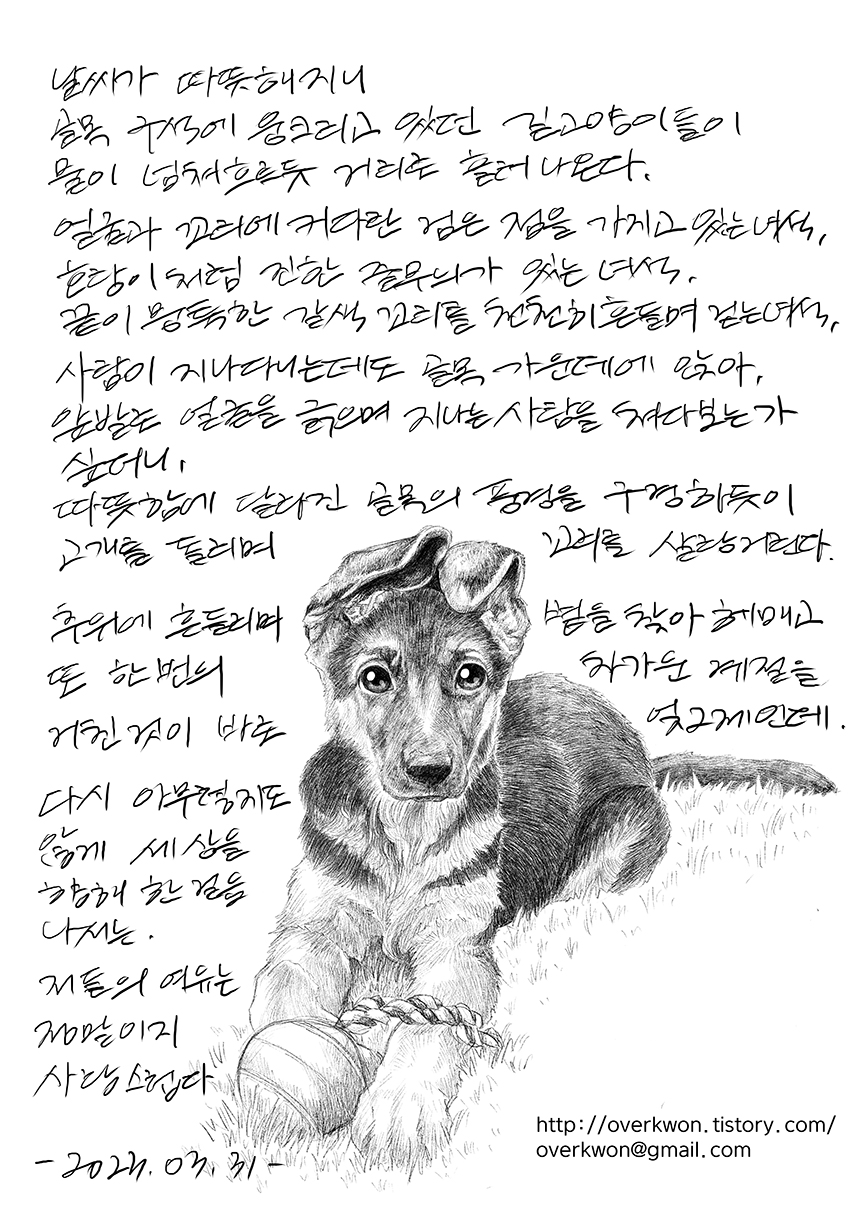 날씨가 따뜻해지니
골목 구석에 웅크리고 있던 길고양이들이
물이 넘쳐흐르듯 거리로 흘러나온다.
얼굴과 꼬리에 커다란 검은 점을 가지고 있는 녀석,
호랑이처럼 진한 줄무늬가 있는 녀석,
끝이 뭉툭한 갈색 꼬리를 천천히 흔들며 걷는 녀석,
사람이 지나다니는데도 골목 가운데에 앉아,
앞발로 얼굴을 긁으며 지나는 사람을 쳐다보는가
싶더니,
따뜻함에 달라진 골목의 풍경을 구경하듯이
고개를 돌리며 꼬리를 살랑거린다.
추위에 흔들리며 볕을 찾아 헤매고
또 한 번의 차가운 계절을
거친 것이 바로 엊그제인데.
다시 아무렇지도
않게 세상을
향해 한 걸음
나서는.
저들의 여유는
정말이지
사랑스럽다
-2023.03.31-
http://overkwon.tistory.com/
overkwon@gmail.com